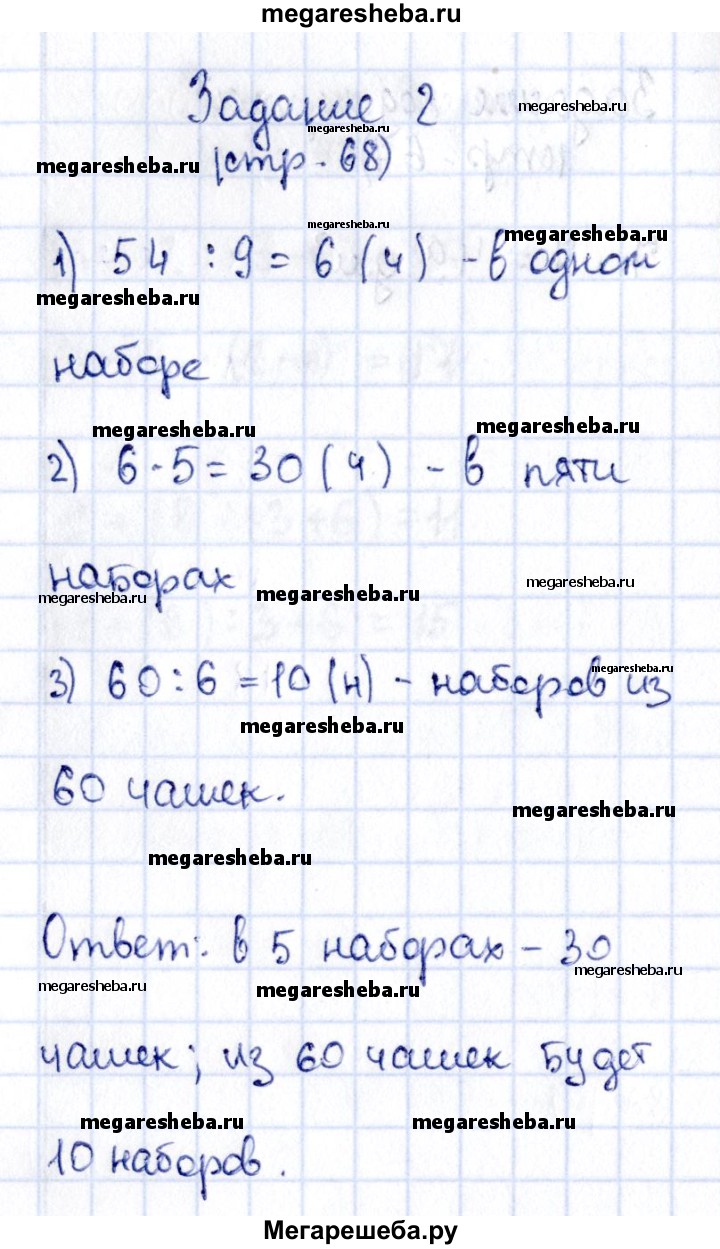 megaresheba.ru
Задание 2
megaresheba.ru
megaresheba.ru
(стр - 68)
megaresheba.ru
megaresheba.ru
megaresheba.ru
1) 54 : 9 = 6 (ч) - в одном
megaresheba.ru
наборе
megaresheba.ru
megaresheba.ru
2) 6 · 5 = 30 (ч) - в пяти
наборах
megaresheba.ru
megaresheba.ru
megaresheba.ru
megaresheba.ru
3) 60 : 6 = 10 (н) - наборов из
megaresheba.ru
60 чашек.
megaresheba.ru
megaresheba.ru
Ответ: в 5 наборах - 30
megaresheba.ru
megaresheba.ru
megaresheba.ru
чашек; из 60 чашек будет
megaresheba.ru
megaresheba.ru
10 наборов.
Мегарешеба.ру